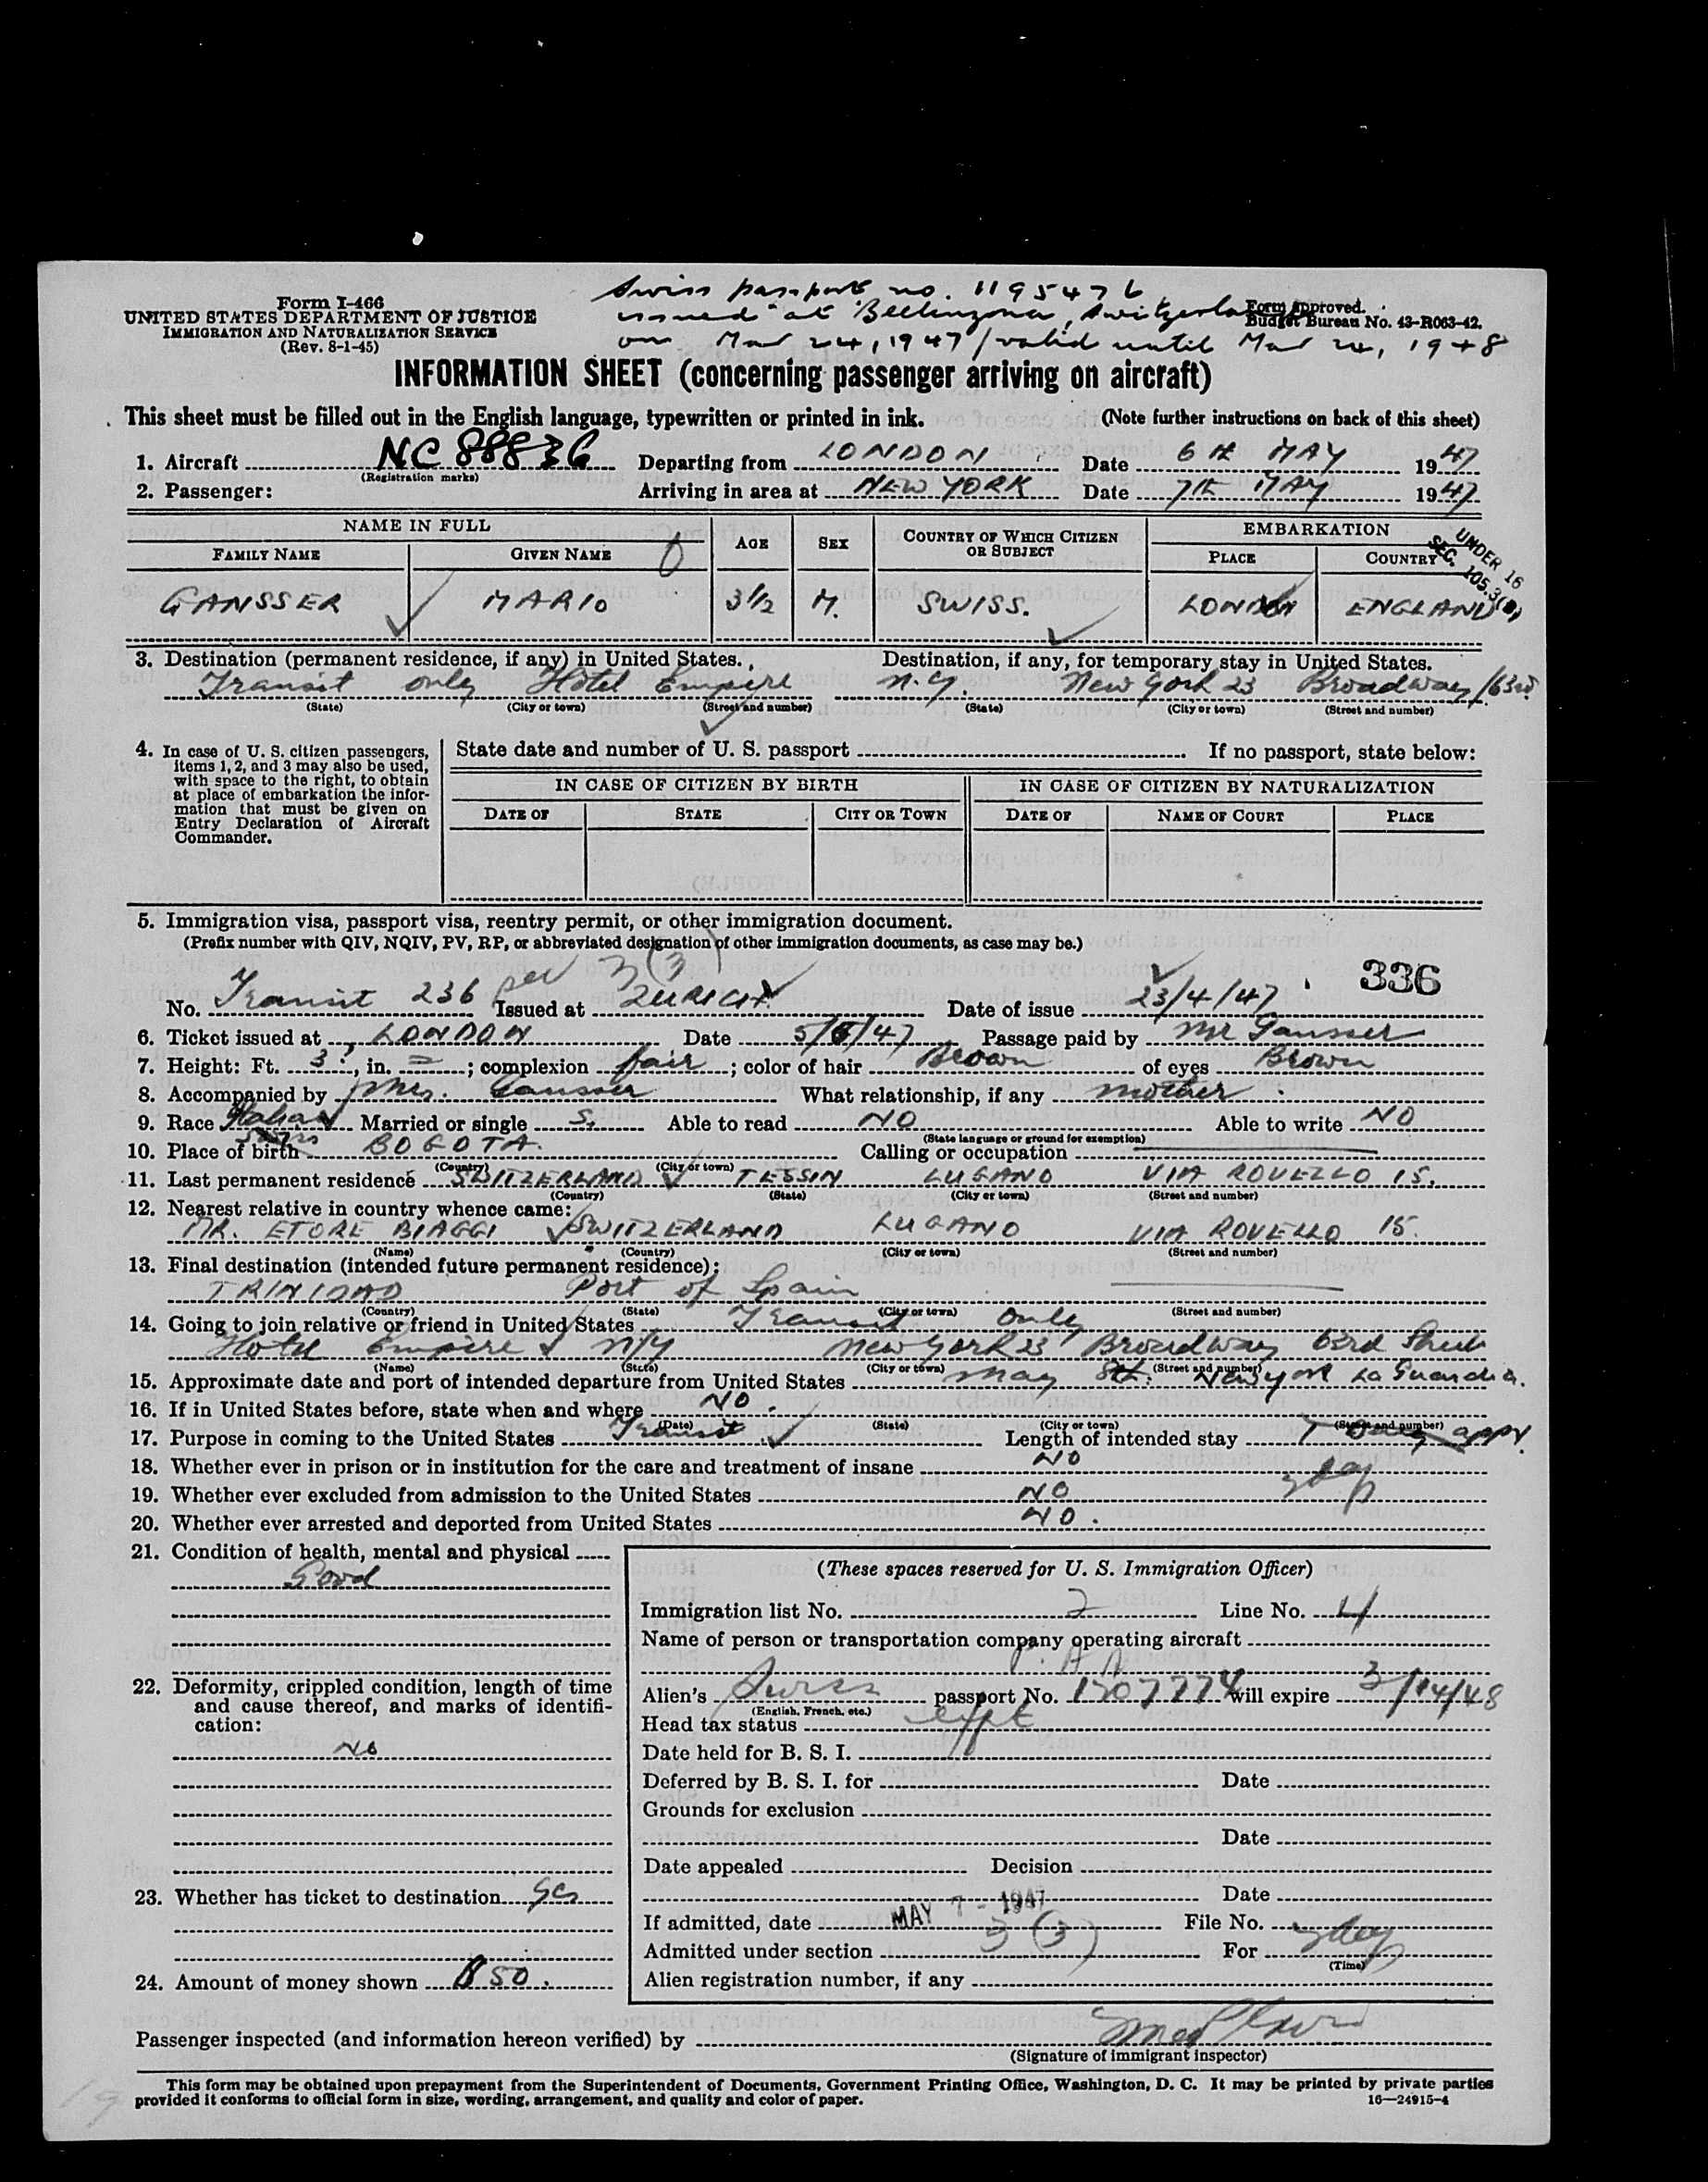 Swiss passport no. 1195476
Form I-466
UNITED STATES DEPARTMENT OF JUSTICE
IMMIGRATION AND NATURALIZATION SERVICE
(Rev. 8-1-45)
issued at Bellinzona, Switzerland
Form approved.
Budget Bureau No. 43-R063-42.
on Mar 24, 1947 / valid until Mar 24, 1948
INFORMATION SHEET (concerning passenger arriving on aircraft)
This sheet must be filled out in the English language, typewritten or printed in ink. (Note further instructions on back of this sheet)
1. Aircraft NC 88836 Departing from LONDON Date 6th MAY 1947
(Registration marks)
2. Passenger: Arriving in area at NEW YORK Date 7th MAY 1947
NAME IN FULL AGE SEX COUNTRY OF WHICH CITIZEN OR SUBJECT EMBARKATION
FAMILY NAME GIVEN NAME PLACE COUNTRY
UNDER 16
SEC. 105.3(a)
GANSSER MARIO 3 1/2 M. SWISS. LONDON ENGLAND
3. Destination (permanent residence, if any) in United States. Destination, if any, for temporary stay in United States.
Transit only Hotel Empire N.Y. New York 23 Broadway/63rd
(State) (City or town) (Street and number) (State) (City or town) (Street and number)
4. In case of U. S. citizen passengers, items 1, 2, and 3 may also be used, with space to the right, to obtain at place of embarkation the information that must be given on Entry Declaration of Aircraft Commander.
State date and number of U. S. passport If no passport, state below:
IN CASE OF CITIZEN BY BIRTH IN CASE OF CITIZEN BY NATURALIZATION
DATE OF STATE CITY OR TOWN DATE OF NAME OF COURT PLACE
5. Immigration visa, passport visa, reentry permit, or other immigration document.
(Prefix number with QIV, NQIV, PV, RP, or abbreviated designation of other immigration documents, as case may be.)
3(3)
336
No. Transit 236 Issued at ZURICH Date of issue 23/4/47
6. Ticket issued at LONDON Date 5/5/47 Passage paid by Mr Gansser
7. Height: Ft. 3', in. =; complexion fair; color of hair Brown of eyes Brown
8. Accompanied by Mrs. Gansser What relationship, if any mother
9. Race Italian Married or single S. Able to read NO Able to write NO
(State language or ground for exemption)
10. Place of birth BOGOTA. Calling or occupation
(Country) (City or town)
11. Last permanent residence SWITZERLAND TESSIN LUGANO VIA ROVELLO 15.
(Country) (State) (City or town) (Street and number)
12. Nearest relative in country whence came:
MR. ETORE BIAGGI SWITZERLAND LUGANO VIA ROVELLO 15.
(Name) (Country) (City or town) (Street and number)
13. Final destination (intended future permanent residence):
TRINIDAD Port of Spain
(Country) (State) (City or town) (Street and number)
14. Going to join relative or friend in United States Transit only
Hotel Empire N/Y New York 23 Broadway 63rd Street
(Name) (State) (City or town) (Street and number)
15. Approximate date and port of intended departure from United States May 8th. New York La Guardia.
16. If in United States before, state when and where NO.
(Date) (State) (City or town) (Street and number)
17. Purpose in coming to the United States Transit Length of intended stay 1 day appr.
18. Whether ever in prison or in institution for the care and treatment of insane NO
19. Whether ever excluded from admission to the United States NO
20. Whether ever arrested and deported from United States NO.
21. Condition of health, mental and physical
Good
22. Deformity, crippled condition, length of time and cause thereof, and marks of identification:
No
23. Whether has ticket to destination Yes
24. Amount of money shown $50.
(These spaces reserved for U. S. Immigration Officer)
Immigration list No. 2 Line No. 4
Name of person or transportation company operating aircraft
P. A A
Alien's Swiss passport No. 1207774 will expire 3/14/48
(English, French, etc.)
Head tax status
Date held for B. S. I.
Deferred by B. S. I. for Date
Grounds for exclusion
Date
Date appealed Decision
Date
If admitted, date MAY 7 - 1947 File No.
Admitted under section 3 (3) For
(Time)
Alien registration number, if any
Passenger inspected (and information hereon verified) by
(Signature of immigrant inspector)
This form may be obtained upon prepayment from the Superintendent of Documents, Government Printing Office, Washington, D. C. It may be printed by private parties
provided it conforms to official form in size, wording, arrangement, and quality and color of paper. 16—24915-4